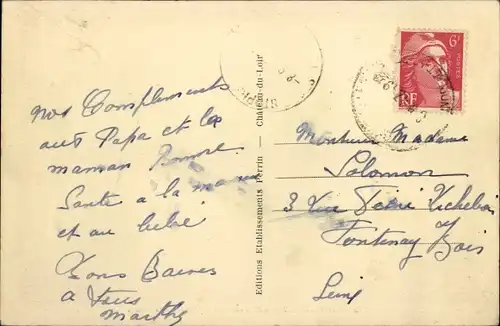 Nos Compliments
aux Papa et la
maman Bonne
Santé a la maman
et au bebé
Bons Baires
a Tous
Marthe
Editions Etablissements Perrin - Château-du-Loir
6F
POSTES
RF
Monsieur Madame
Solomon
3 Rue
Fontenay s/ Bois
Seine